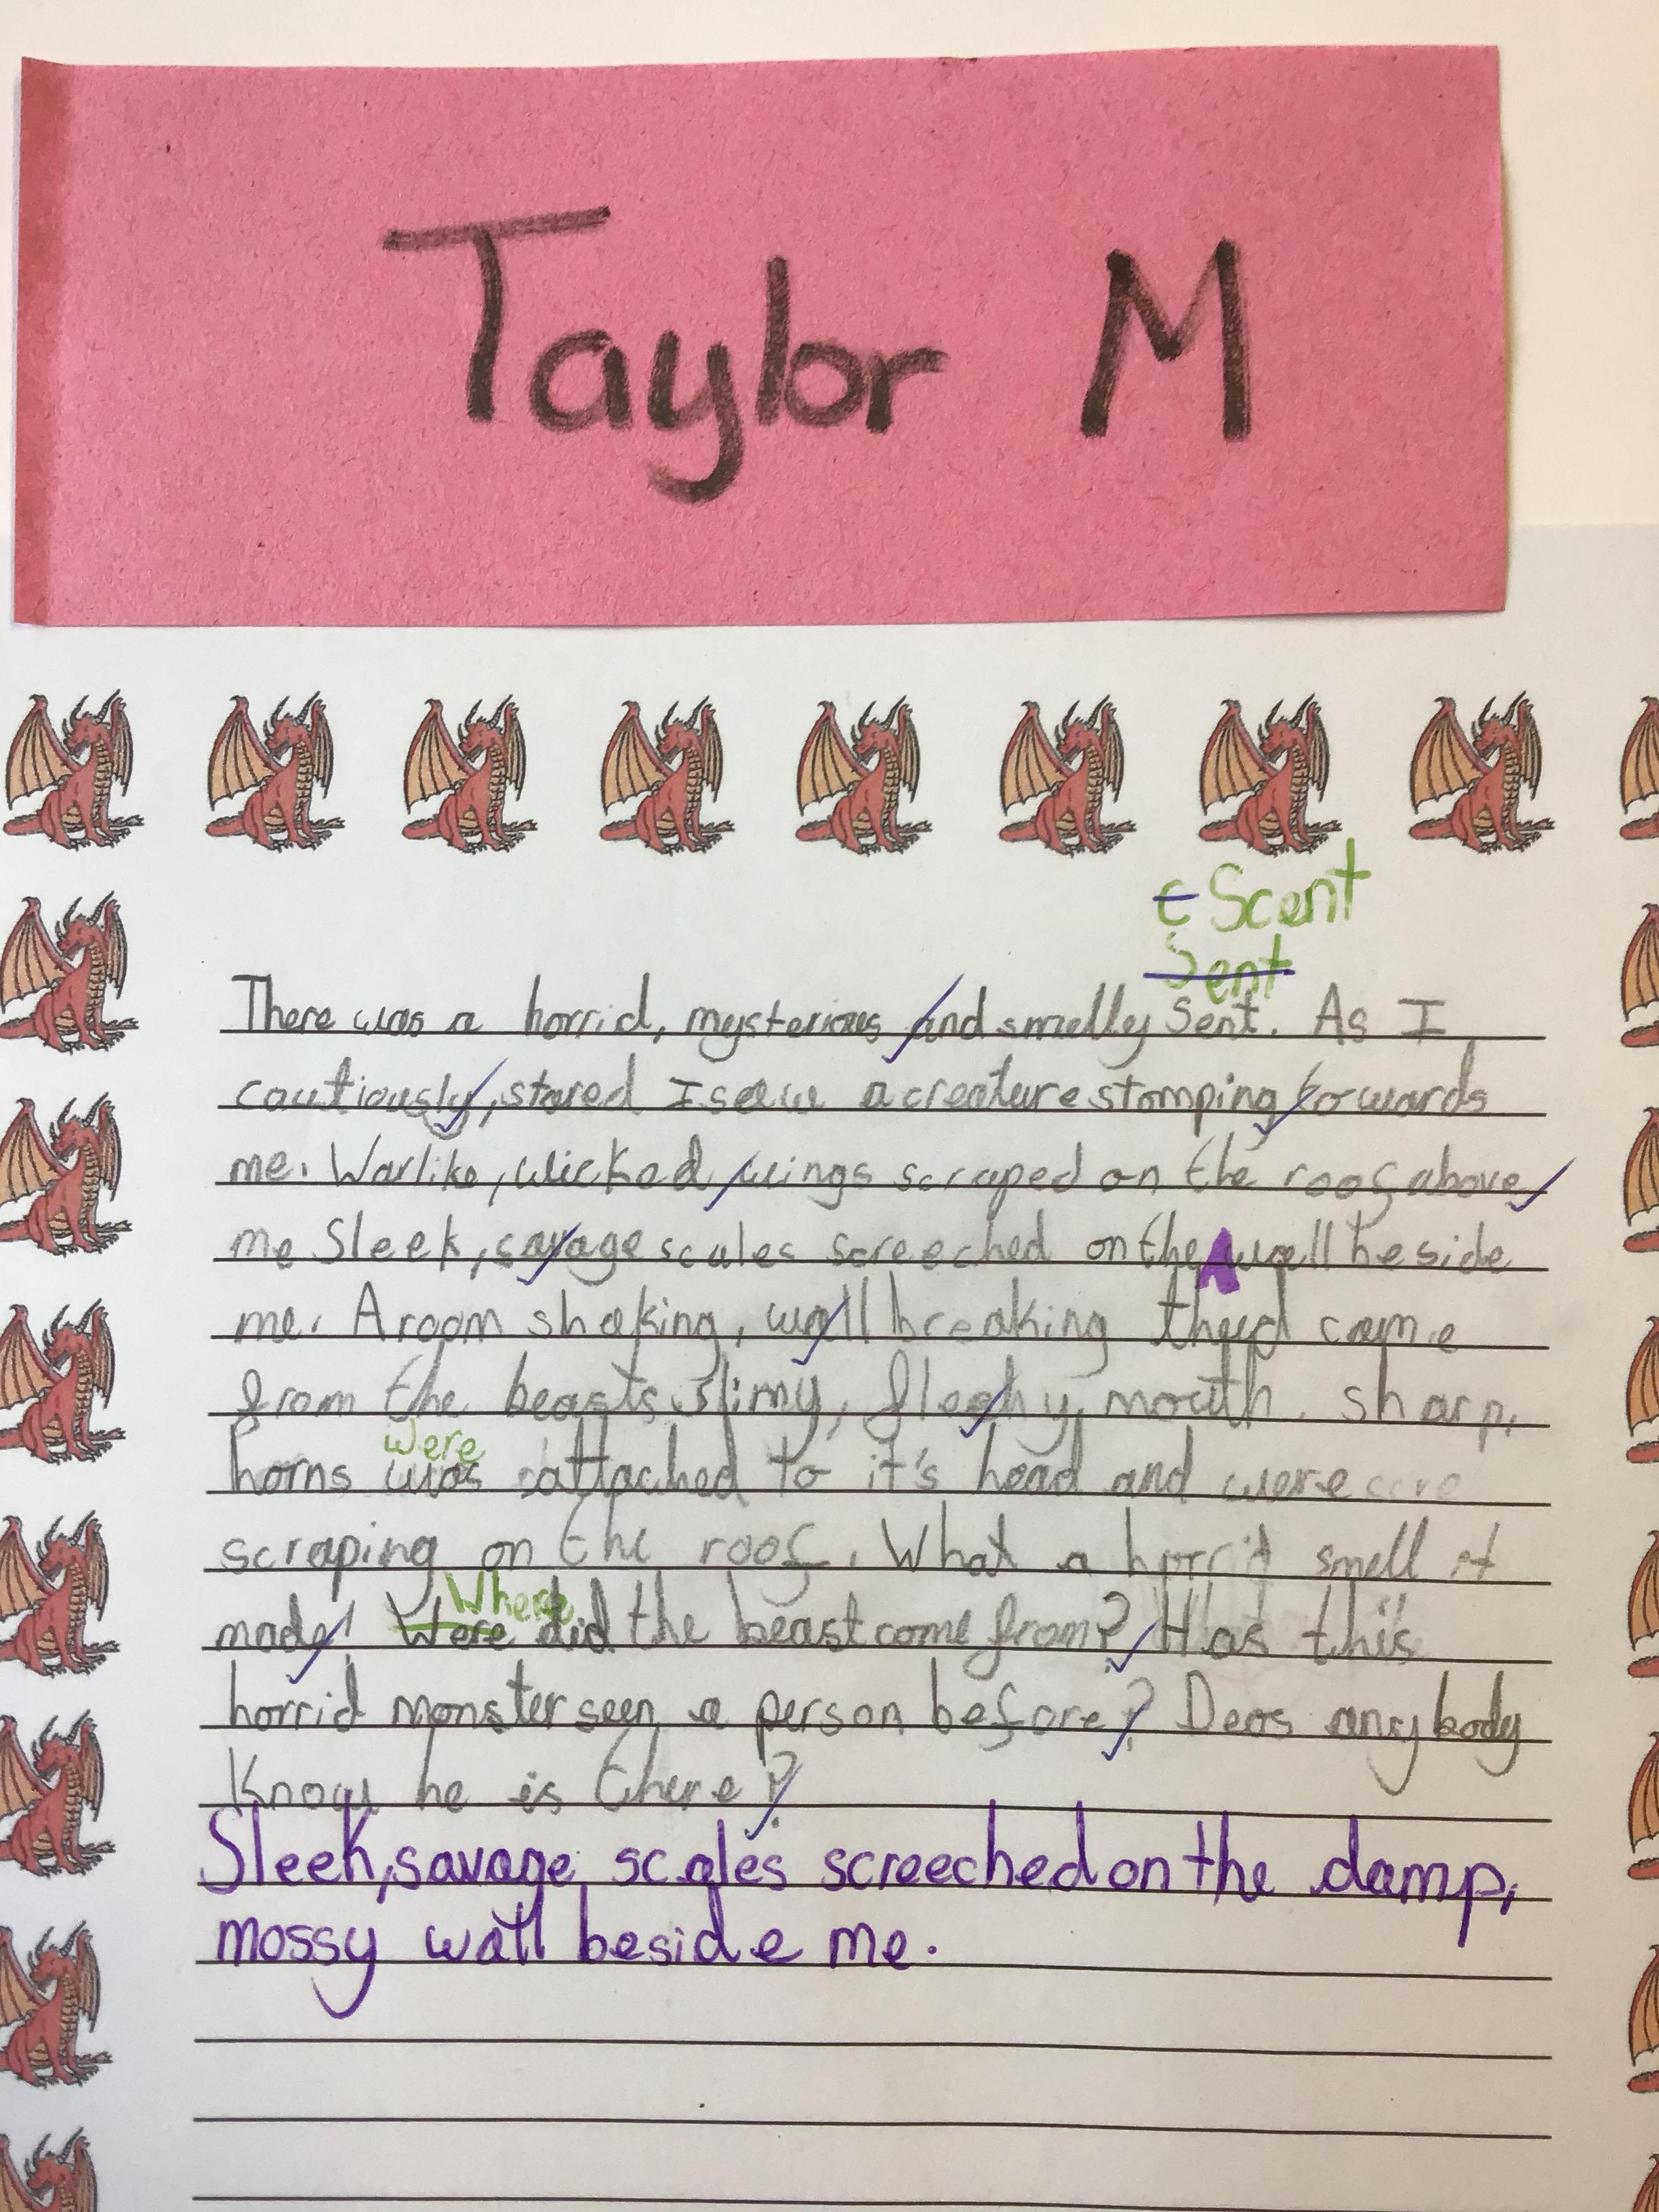 Taylor M
c Scent
Sent
There was a horrid, mysterious and smelly Sent. As I
cautiously, stared I saw a creature stomping towards
me. Warlike, wicked wings scraped on the roof above
me Sleek, savage scales screeched on the wall beside
me. A room shaking, wall breaking thud came
from the beasts slimy, fleshy mouth. sharp,
were
horns was attached to it's head and were
scraping on the roof. What a horrid smell it
Where
made! Were did the beast come from? Has this
horrid monster seen a person before? Deos anybody
Know he is there?
Sleek, savage scales screeched on the damp,
mossy wall beside me.